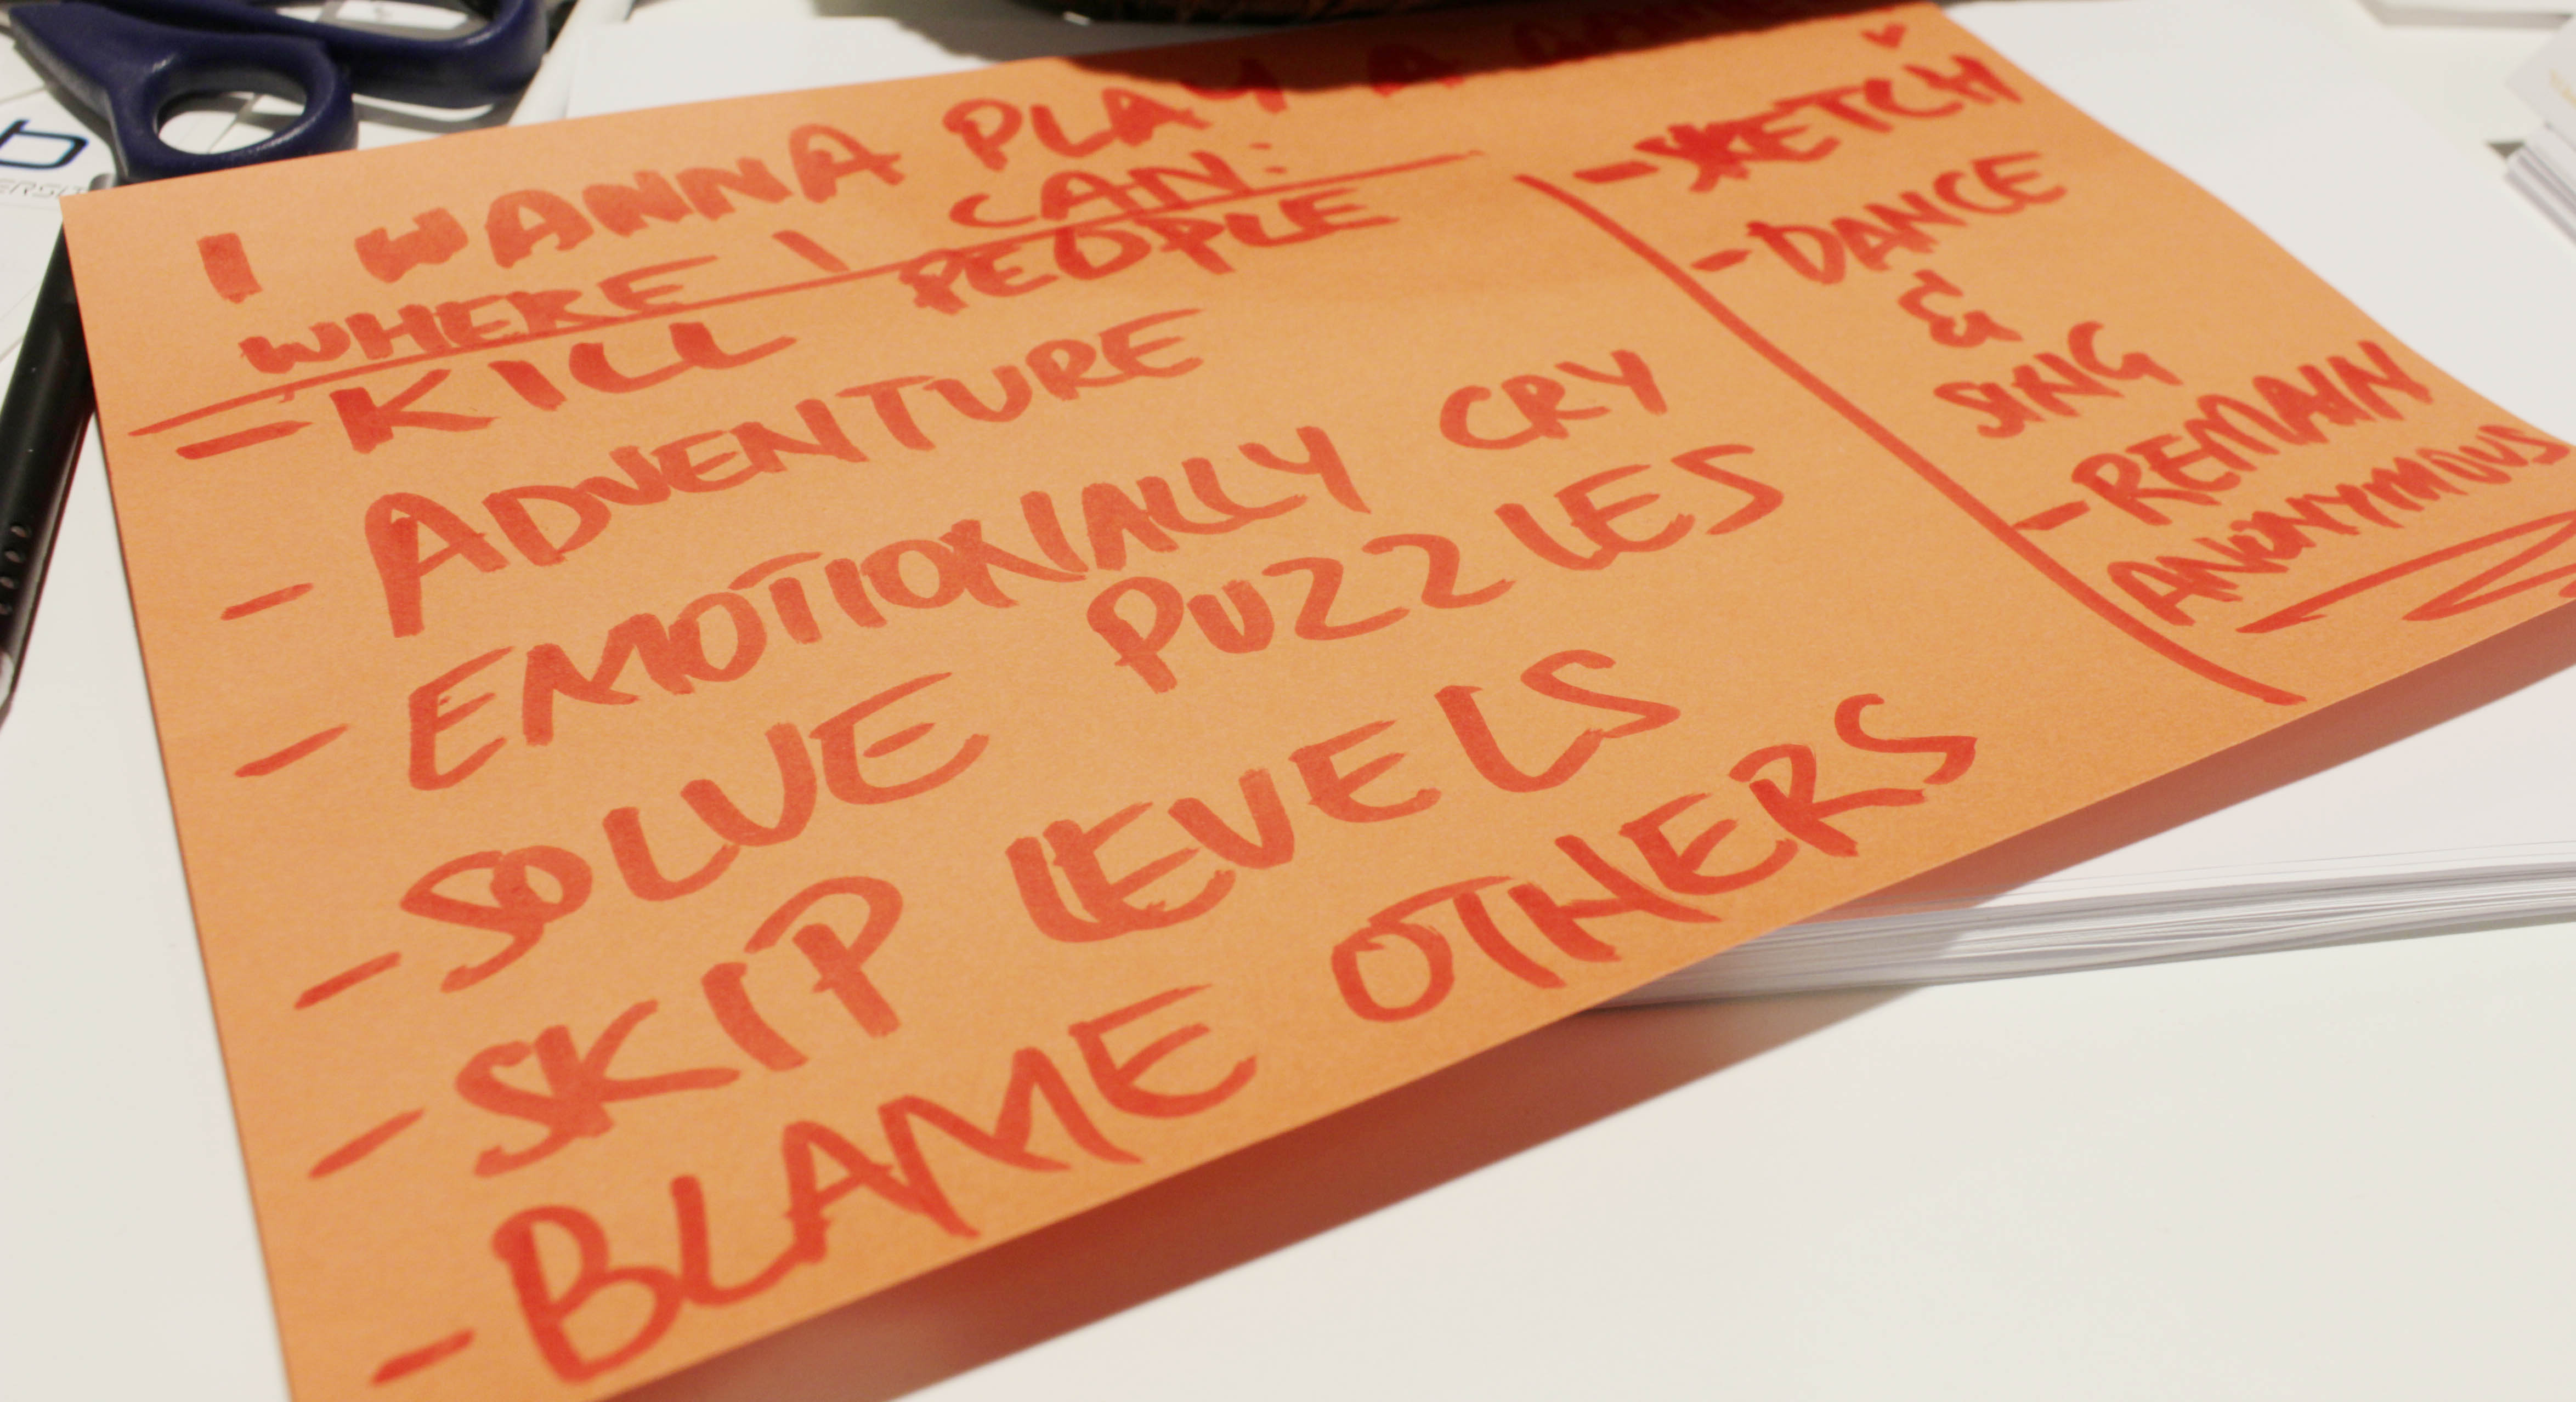 I WANNA PLAY A
WHERE I CAN:
- KILL PEOPLE
- ADVENTURE
- EMOTIONALLY CRY
- SOLVE PUZZLES
- SKIP LEVELS
- BLAME OTHERS
- SKETCH
- DANCE
&
SING
- REMAIN
ANONYMOUS
b
ERSIT